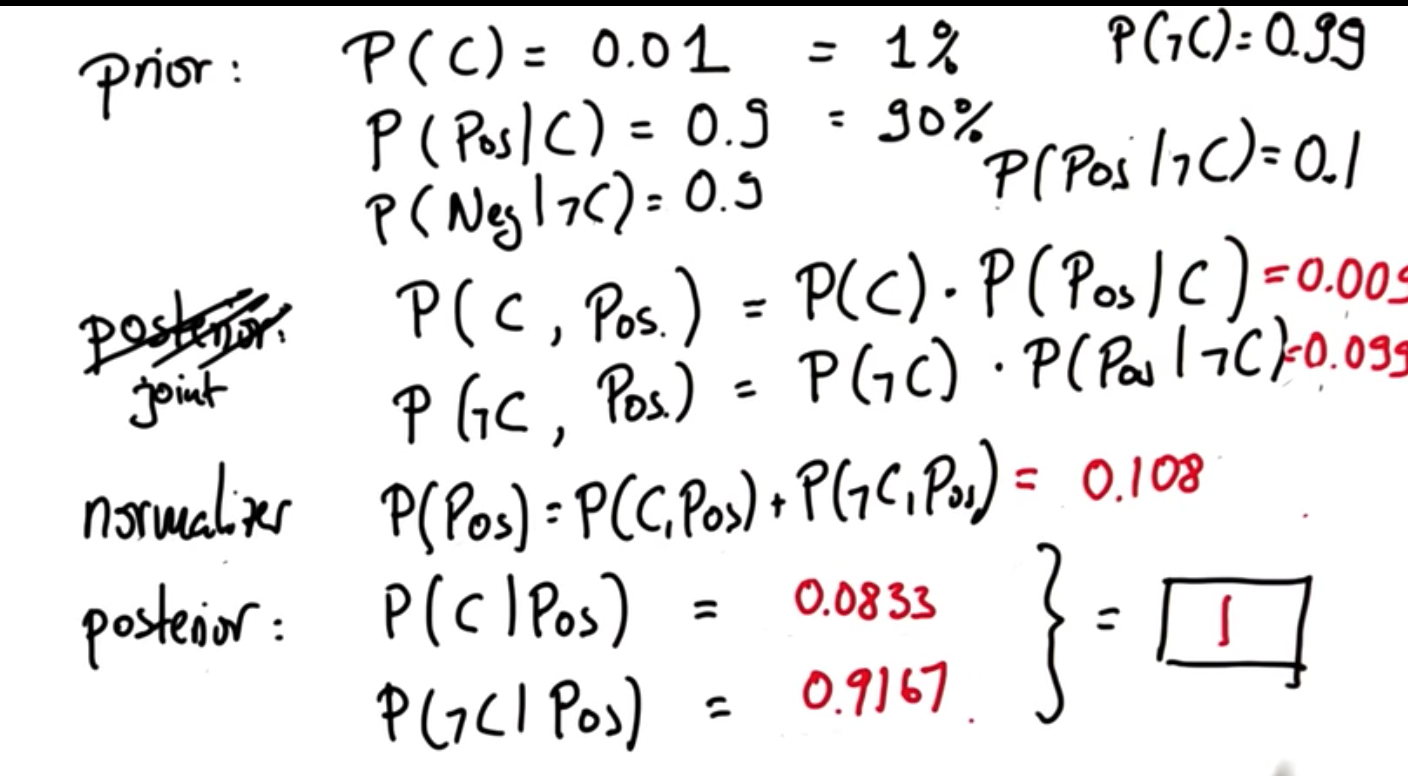 prior: P(C) = 0.01 = 1% P(¬C) = 0.99
P(Pos|C) = 0.9 = 90%
P(Neg|¬C) = 0.9 P(Pos|¬C) = 0.1
posterior: P(C, Pos.) = P(C) · P(Pos|C) = 0.009
joint P(¬C, Pos.) = P(¬C) · P(Pos|¬C) = 0.099
normalizer P(Pos) = P(C, Pos) + P(¬C, Pos) = 0.108
posterior: P(C|Pos) = 0.0833 } = 1
P(¬C|Pos) = 0.9167